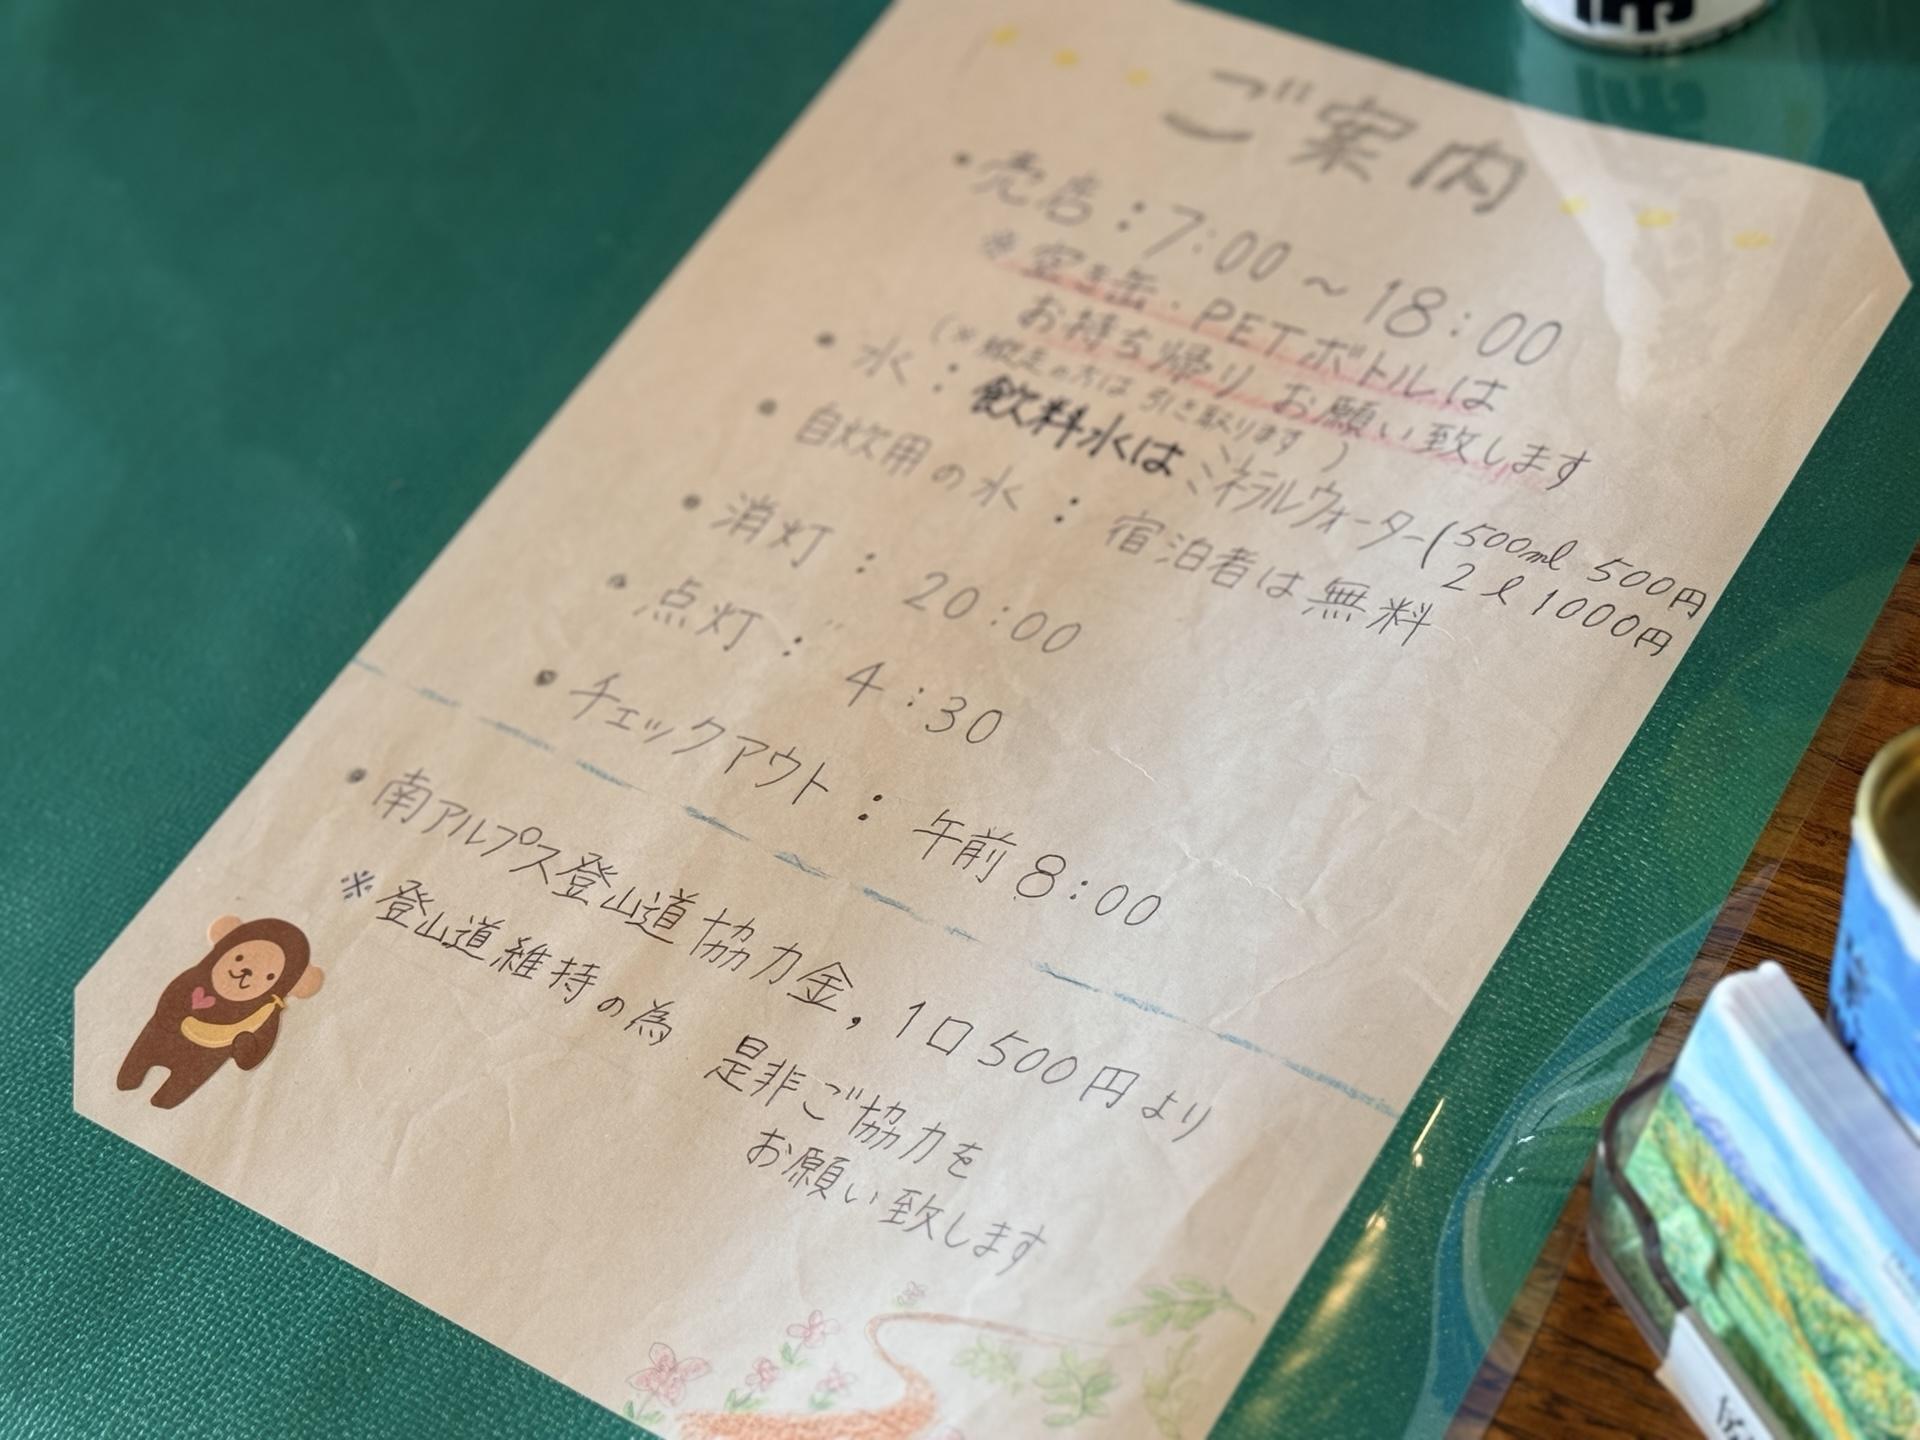 ご案内
• 売店：7:00～18:00
※空き缶・PETボトルは
お持ち帰りお願い致します
(※の方は引き取ります)
• 水：飲料水はミネラルウォーター(500ml 500円
2ℓ 1000円
• 自炊用の水：宿泊者は無料
• 消灯：20:00
• 点灯：4:30
• チェックアウト：午前8:00
• 南アルプス登山道協力金，1口500円より
※登山道維持の為 是非ご協力を
お願い致します